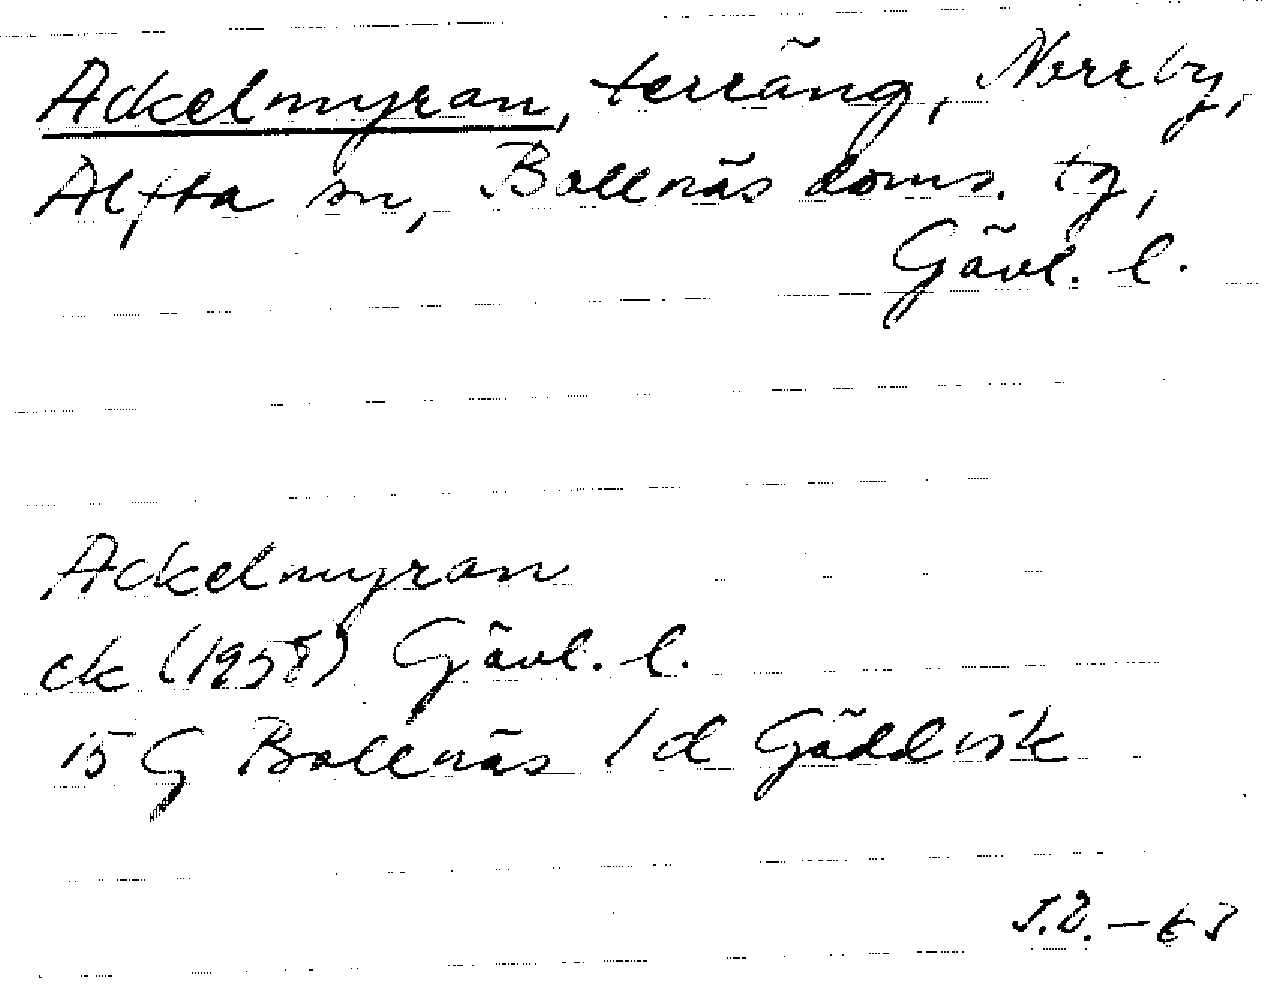 Ackelmyran, terräng, Norrby,
Alfta sn, Bollnäs doms. tg,
Gävl. l.
Ackelmyran
ek (1958) Gävl. l.
15 G Bollnäs 1 d Gäddvik
-63